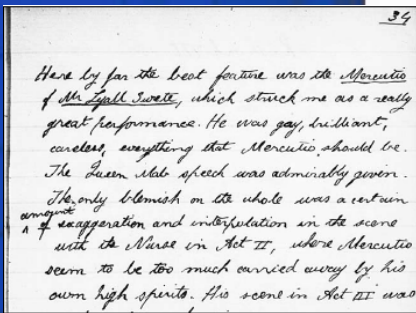 34
Here by far the best feature was the Mercutio
of Mr Lyall Swete, which struck me as a really
great performance. He was gay, brilliant,
careless, everything that Mercutio should be.
The Queen Mab speech was admirably given.
The only blemish on the whole was a certain
amount
^ of exaggeration and interpolation in the scene
with the Nurse in Act II, where Mercutio
seem to be too much carried away by his
own high spirits. His scene in Act III was